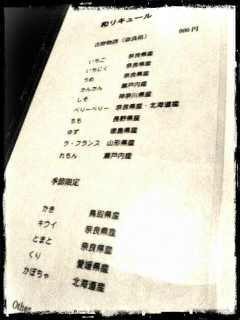 和リキュール 600円
吉野物語(奈良県)
いちご 奈良県産
いちじく 奈良県産
うめ 奈良県産
かんかん 瀬戸内産
しそ 神奈川県産
ベリーベリー 奈良県産・北海道産
もも 長野県産
ゆず 徳島県産
ラ・フランス 山形県産
れもん 瀬戸内産
季節限定
かき 鳥取県産
キウイ 奈良県産
とまと 奈良県産
くり 愛媛県産
かぼちゃ 北海道産
Other